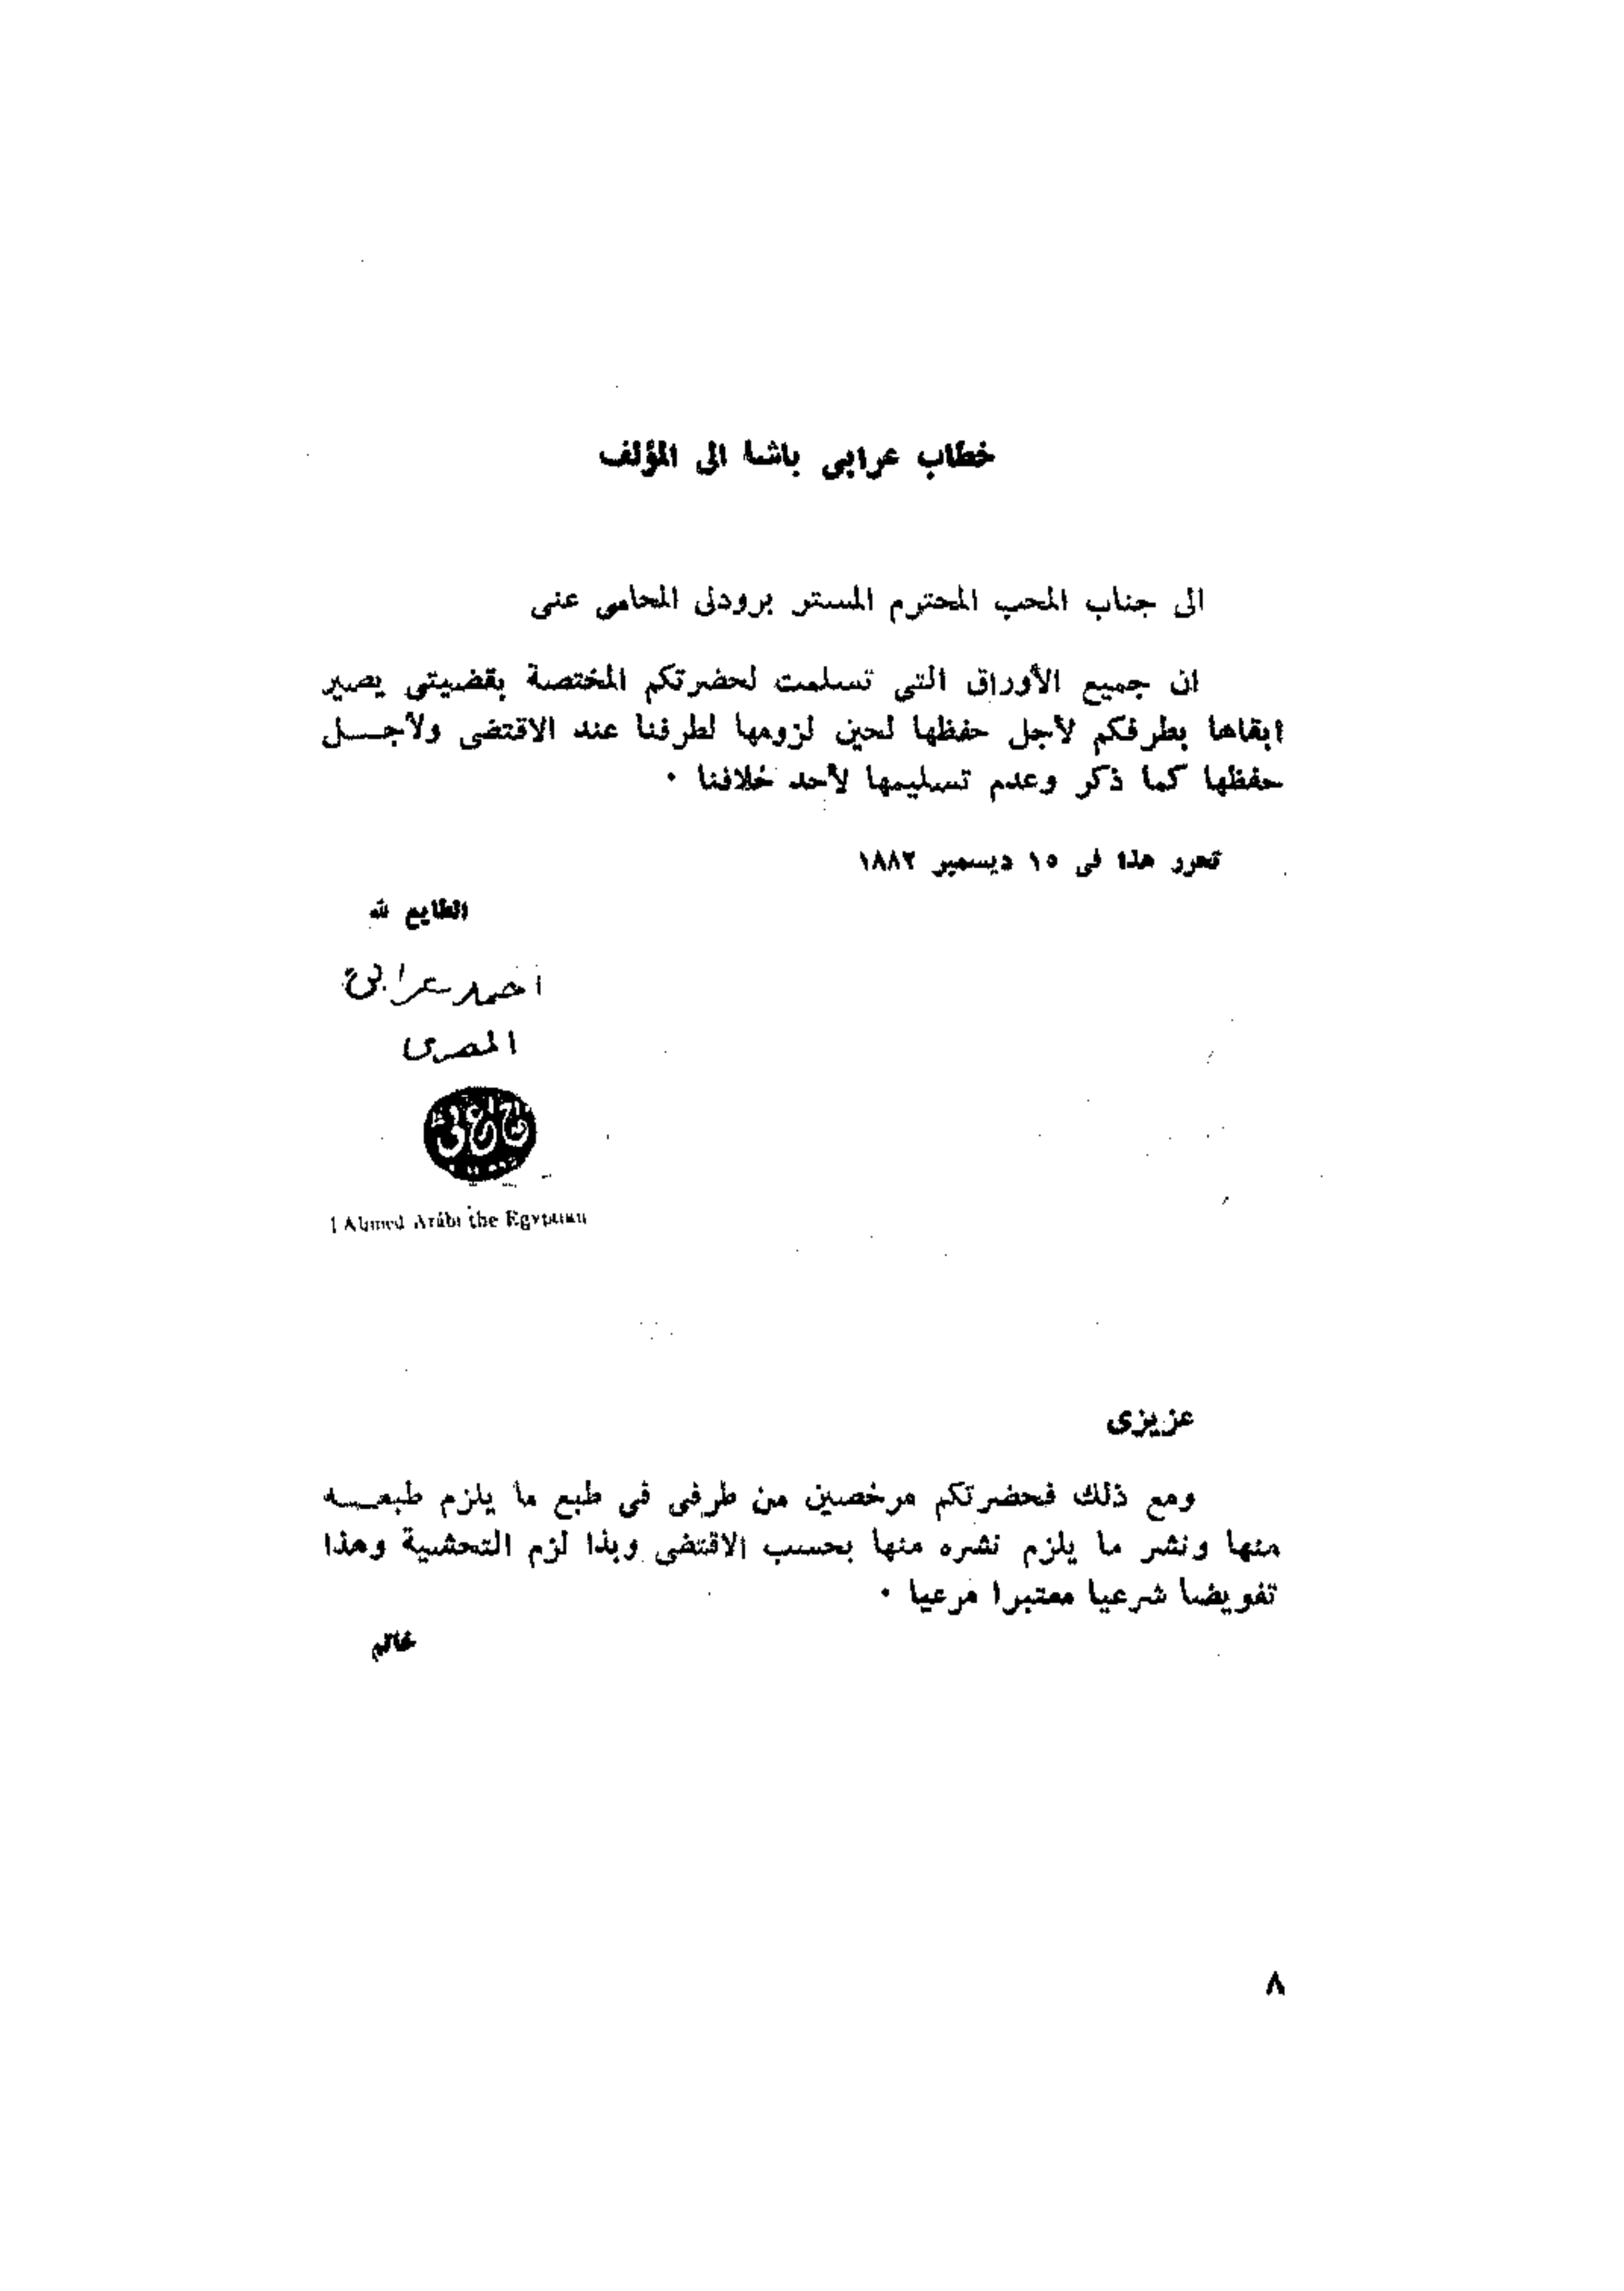 خطاب عرابى باشا الى المؤلف
الى جناب المحب المحترم المستر برودلى المحامى عنى
ان جميع الأوراق التى تسلمت لحضرتكم المختصة بقضيتى يصير
ابقاها بطرفكم لأجل حفظها لحين لزومها لطرفنا عند الاقتضى ولأجل
حفظها كما ذكر وعدم تسليمها لأحد خلافنا ٠
تحرر هذا فى ١٥ ديسمبر ١٨٨٢
الطايع لله
احمد عرابى
المصرى
I Ahmed Arábi the Egyptian
عزيزى
ومع ذلك فحضرتكم مرخصين من طرفى فى طبع ما يلزم طبعه
منها ونشر ما يلزم نشره منها بحسب الاقتضى وبذا لزم التحشية وهذا
تفويضا شرعيا معتبرا مرعيا ٠
٨